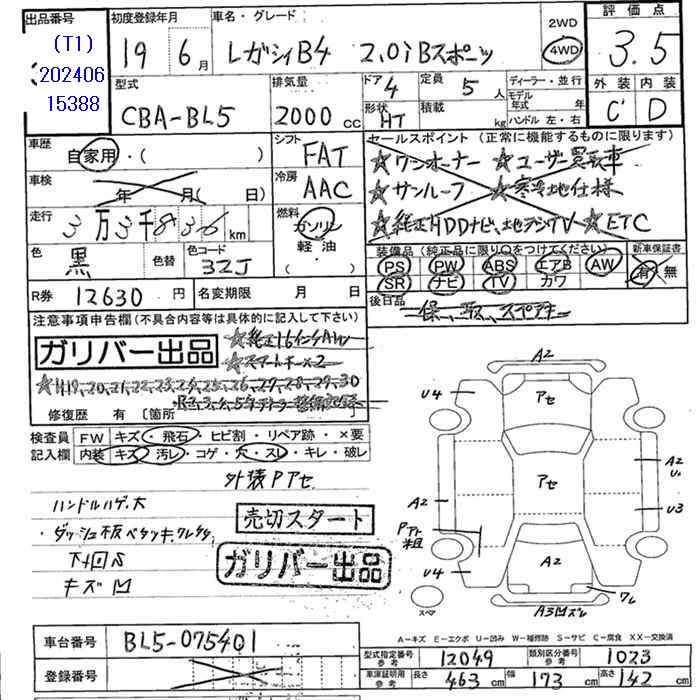 出品番号
(T1)
202406
15388
初度登録年月
19 6月
車名・グレード
レガシィB4 2.0i Bスポーツ
2WD
4WD
評価点
3.5
外装 内装
C' D
型式
CBA-BL5
排気量
2000 cc
ドア 4
定員 5人
形状 HT
積載 kg
ディーラー・並行
モデル年式 年
ハンドル 左・右
車歴
自家用・( )
シフト
FAT
車検
年 月( 日)
冷房
AAC
走行
3万3千836km
燃料
ガソリン
軽油
( )
色
黒
色替
色コード
32J
R券 12630円
名変期限 月 日
セールスポイント (正常に機能するものに限ります)
★ワンオーナー ★ユーザー買取車
★サンルーフ ★寒冷地仕様
★純正HDDナビ、地デジTV ★ETC
装備品 (純正品に限り○をつけてください)
PS PW ABS エアB AW
SR ナビ TV カワ
新車保証書
有 無
後日品
注意事項申告欄(不具合内容等は具体的に記入して下さい)
ガリバー出品
★純正16インチAW
★スマートキー×2
★H19、20、21、22、23、24、25、26、27、28、29、30
修復歴 有 〔箇所
検査員
記入欄
FW キズ・飛石・ヒビ割・リペア跡・×要
内装 キズ・汚レ・コゲ・穴・スレ・キレ・破レ
外装Pアセ
ハンドルハゲ、大
売切スタート
ガリバー出品
下廻り
キズ凹
A2
U4
アセ
A2
U.
アセ
A2
U3
U4
A2
ワレ
スペア
A3凹ズレ
A-キズ E-エクボ U-凹み W-補修跡 S-サビ C-腐食 XX-交換済
車台番号 BL5-075401
登録番号
型式指定番号
参考
12049
類別区分番号
参考
1023
車庫証明用
参考
長さ 463cm
幅 173cm
高さ 142cm